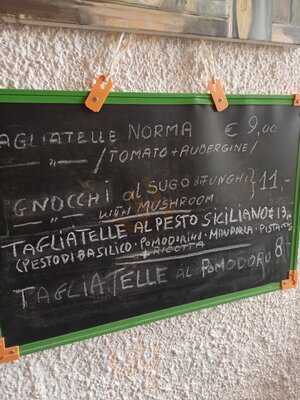 AGLIATELLE NORMA € 9,00
— " — /TOMATO + AUBERGINE/
GNOCCHI al SUGO di FUNGHI } 11,-
— " — WITH MUSHROOM
TAGLIATELLE AL PESTO SICILIANO € 13,-
(PESTO DI BASILICO · POMODORINI · MANDORLA · PISTA
+ RICOTTA
TAGLIATELLE AL POMODORO 8,-